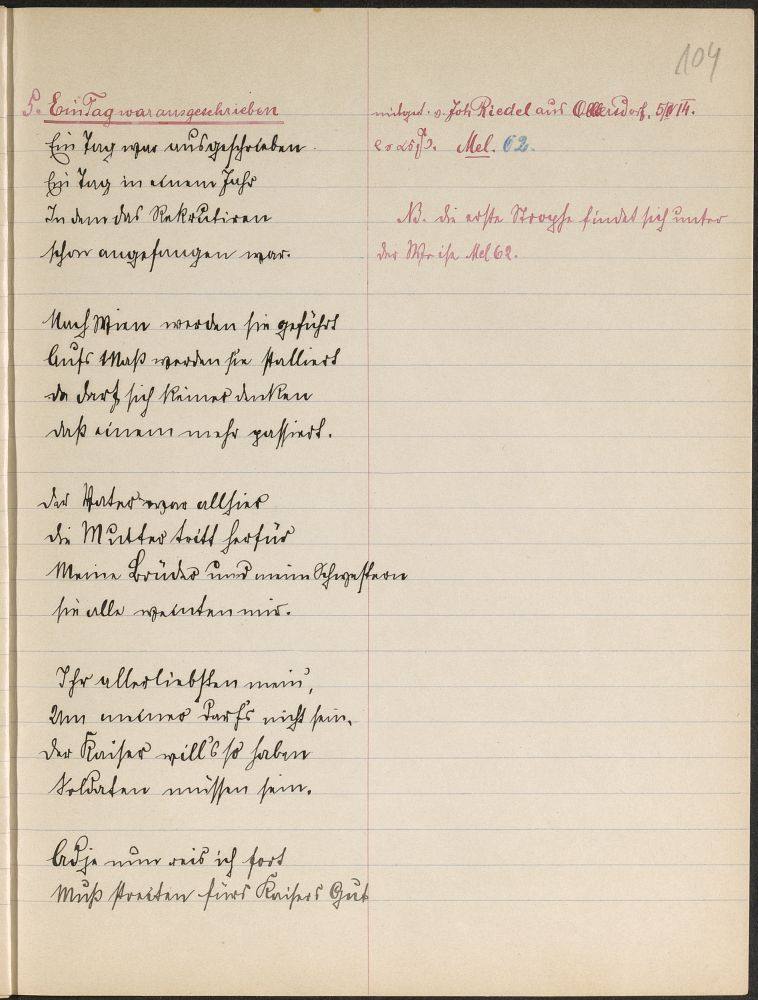 104
5. Ein Tag war ausgeschrieben
mitget. v. Joh. Riedel aus Ollersdorf, 5/ /14.
Mel. 62.
Ein Tag war ausgeschrieben
Ein Tag in einem Jahr
In dem das Rekrutiren
schon angefangen war.
NB. die erste Strophe findet sich unter
der Weise Mel 62.
Nach Wien werden sie geführt
Aufs Maß werden sie stalliert
da darf sich keiner denken
daß einem mehr passiert.
der Vater war allhier
die Mutter tritt herfür
Meine Brüder und meine Schwestern
sie alle weinten mir.
Ihr allerliebsten mein,
Um meiner darfs nicht sein.
der Kaiser will's so haben
Soldaten müssen sein.
Adje nun reis ich fort
Muß streiten fürs Kaisers Gut